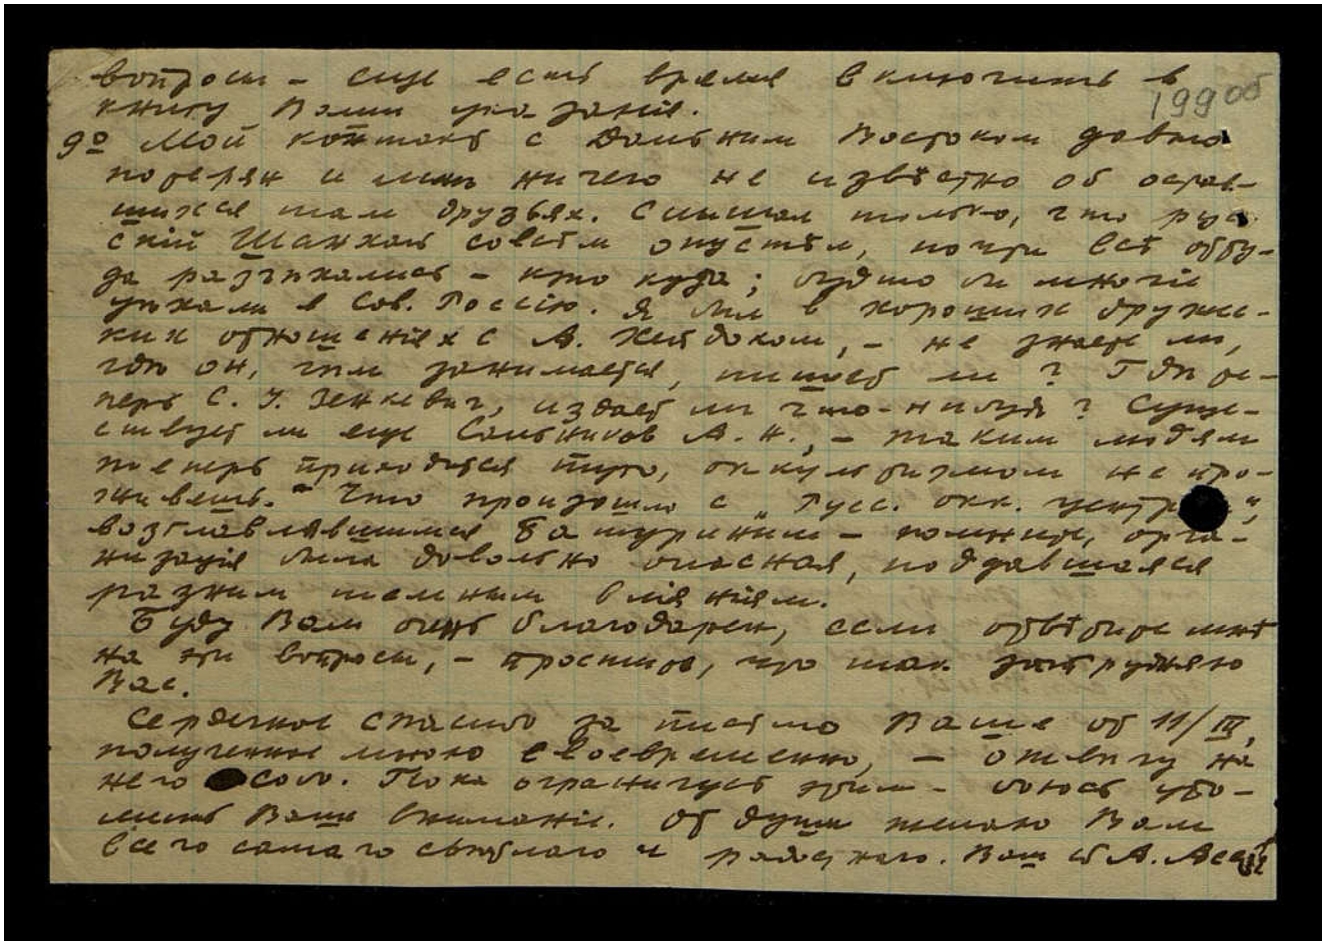 вопросы – еще есть время включить в
книгу Ваши указанія.
199 об
9º Мой контакт с Дальним Востоком давно
потерян и мнѣ ничего не извѣстно об остав-
шихся там друзьях. Слышал только, что рус
скій Шанхай совсѣм опустѣл, почти всѣ отту-
да разъѣхались – кто куда; будто бы многіе
уѣхали в Сов. Россію. Я был в хороших друже-
ких отношеніях с А. Хейдоком, – не знаете ли,
гдѣ он, чѣм занимается, пишет ли? Гдѣ те-
перь С. У. Зенкевич, издает ли что-нибудь? Суще-
ствует ли еще Сальников А. Н., – таким людям
теперь приходится туго, оккультизмом не про-
живешь. Что произошло с „Русс. окк. центром",
возглавлявшимся Батуриным – помню, орга-
низація была довольно опасная, поддавшаяся
разным темным вліяніям.
Буду Вам очень благодарен, если отвѣтите мнѣ
на эти вопросы, – простите, что так затрудняю
Вас.
Сердечное спасибо за письмо Ваше от 11/III,
полученное мною своевременно, – отвѣчу на
него особо. Пока ограничусь этим – боюсь уто-
мить Ваше вниманіе. От души желаю Вам
всего самаго свѣтлаго и радостнаго. Ваш А. Асѣев